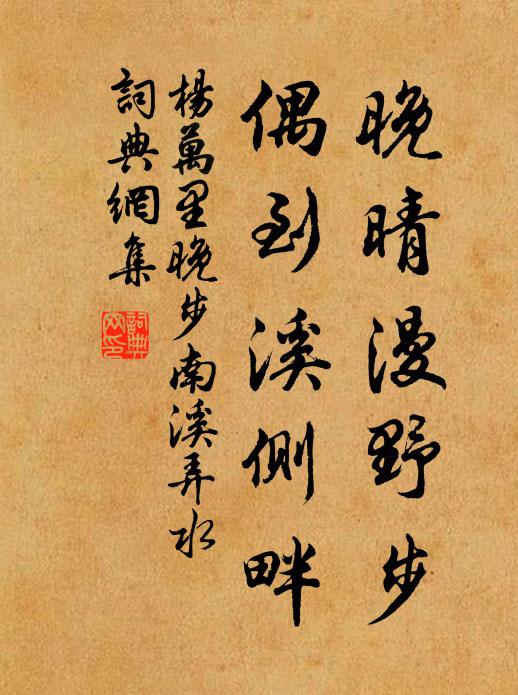 晚晴漫野步
偶到溪側畔
楊萬里晚步南溪弄水
詞典網集
詞典网印